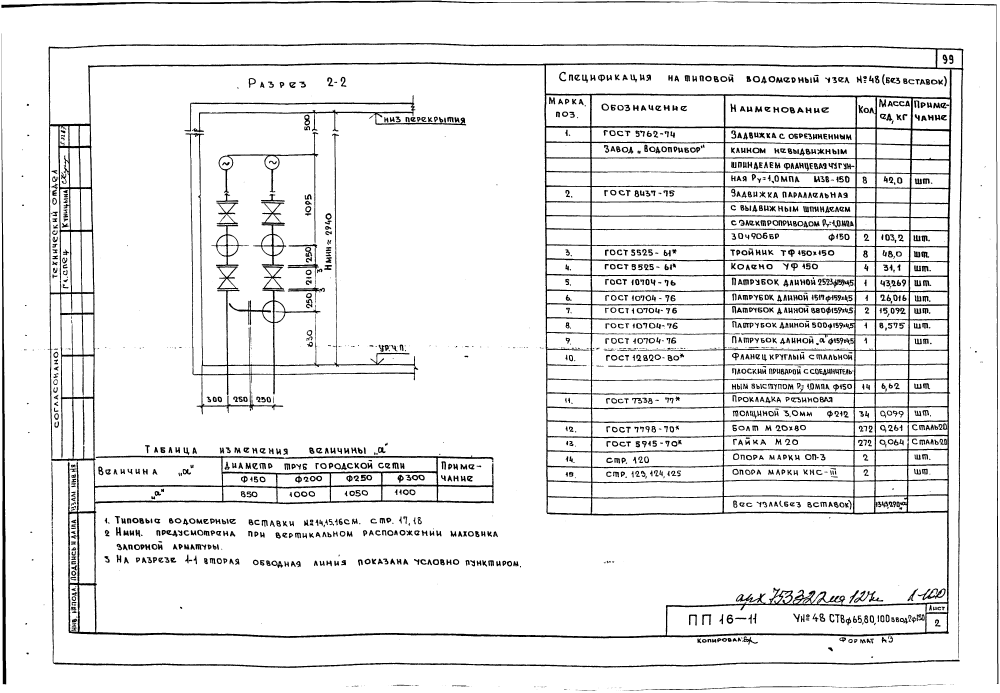 99
Разрез 2-2
низ перекрытия
500
1095
Нмин = 2940
250
210
3
3
250
630
ур.ч.п.
300 250 250
Таблица изменения величины „а"
Величина „а" Диаметр труб городской сети Примечание
Ф150 Ф200 Ф250 Ф300
„а" 850 1000 1050 1100
1. Типовые водомерные вставки №14,15,16 см. стр. 17,18
2 Нмин. предусмотрена при вертикальном расположении маховика
запорной арматуры.
3 На разрезе 1-1 вторая обводная линия показана условно пунктиром.
Спецификация на типовой водомерный узел №48 (без вставок)
Марка, поз. Обозначение Наименование Кол. Масса ед, кг Примечание
1. ГОСТ 5762-74 Задвижка с обрезиненным
Завод „Водоприбор" клином невыдвижным
шпинделем фланцевая чугун-
ная Ру=1,0МПа М38-150 8 42,0 шт.
2. ГОСТ 8437-75 Задвижка параллельная
с выдвижным шпинделем
с электроприводом Ру=1,0МПа
30ч906бр ф150 2 103,2 шт.
3. ГОСТ 5525-61* Тройник ТФ 150х150 8 48,0 шт.
4. ГОСТ 5525-61* Колено УФ 150 4 31,1 шт.
5. ГОСТ 10704-76 Патрубок длиной 2523ф159х4,5 1 43,269 шт.
6. ГОСТ 10704-76 Патрубок длиной 1517ф159х4,5 1 26,016 шт.
7. ГОСТ 10704-76 Патрубок длиной 880ф159х4,5 2 15,092 шт.
8. ГОСТ 10704-76 Патрубок длиной 500ф159х4,5 1 8,575 шт.
9. ГОСТ 10704-76 Патрубок длиной „а" ф159х4,5 1 шт.
10. ГОСТ 12820-80* Фланец круглый стальной
плоский приварой с соединитель-
ным выступом Ру 1,0МПа ф150 14 6,62 шт
11. ГОСТ 7338-77* Прокладка резиновая
толщиной 3,0мм ф212 34 0,099 шт.
12. ГОСТ 7798-70* Болт М 20х80 272 0,261 Сталь20
13. ГОСТ 5915-70* Гайка М 20 272 0,064 Сталь20
14. стр. 120 Опора марки ОП-3 2 шт.
15. стр. 123, 124, 125 Опора марки КНС-III 2 шт.
Вес узла (без вставок)
Технический отдел
Гл. спец.
Согласовано:
Инв. №подл Подпись и дата Взам. инв.№
ПП 16-11 УН№48 СТВф65,80,100 ввод2ф150 Лист 2
Копировал: Формат А3